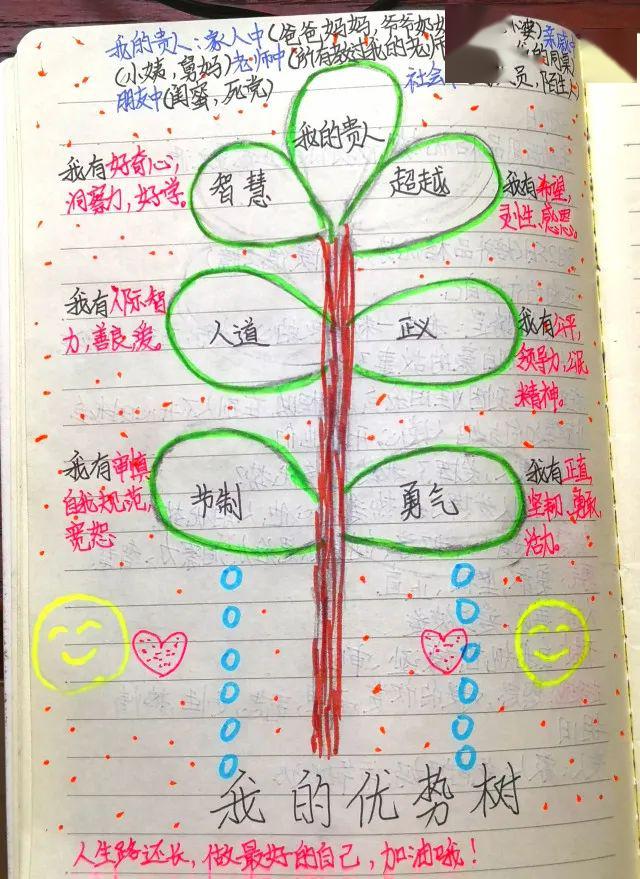 我的贵人：家人中(爸爸妈妈，爷爷奶奶
(小姨，舅妈)老师中(所有教过我的老师
朋友中(闺蜜，死党)
社会
员，陌生人
我的贵人
智慧
超越
我有好奇心，
洞察力，好学。
我有希望，
灵性、感恩。
人道
正义
我有人际智
力，善良，爱。
我有公平，
领导力，公民
精神。
节制
勇气
我有审慎
自我规范，
宽恕
我有正直
坚韧，勇敢，
活力。
我的优势树
人生路还长，做最好的自己，加油哦！